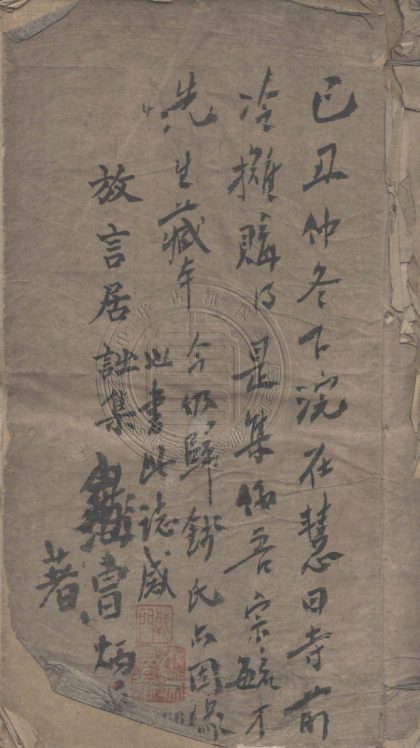 己丑仲冬下浣在慧日寺前
冷攤購得是集係吾宗毓才
先生藏本今仍歸錢氏亦因緣
也書此誌感
放言居詩集
曹炳
著